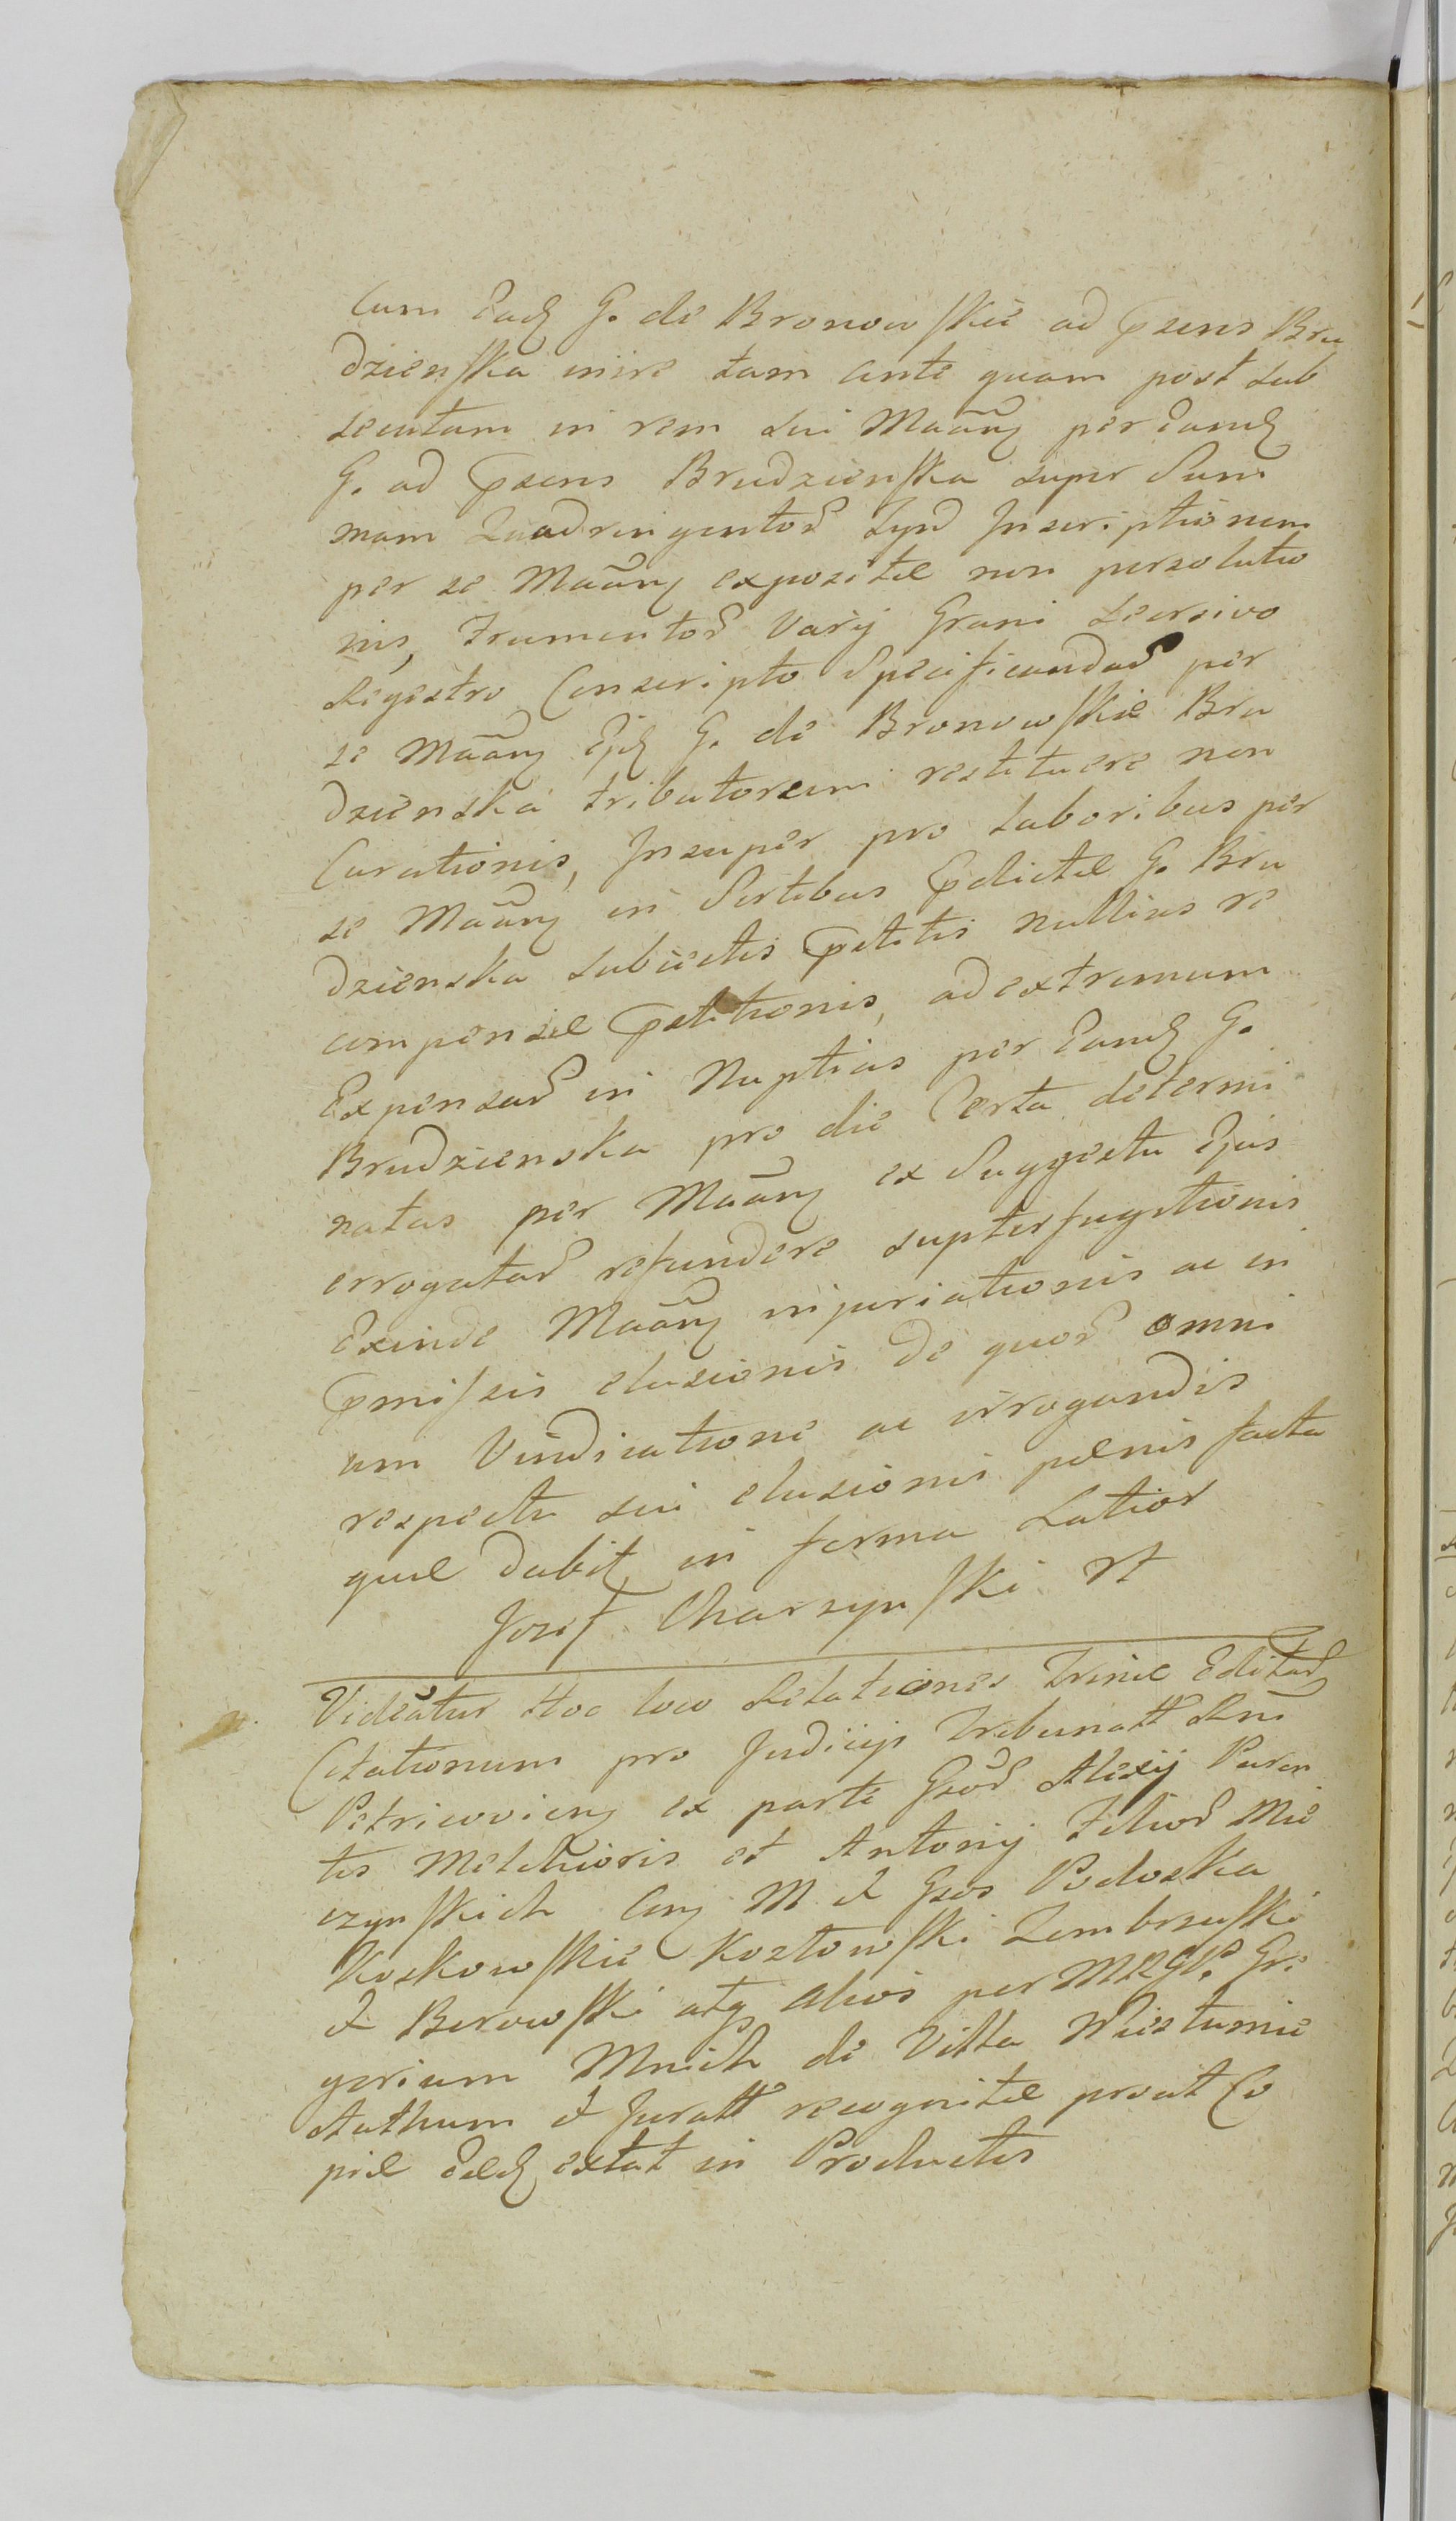 Cum Ead G. de Bronowskie ad psens Bru
dzienska inire tam ante quam post sub
secutam in rem sui Maãny per Eand
G. ad psens Brudzienska super Sum
mam Quadringentor Synd Inscriptionem
per se Maãny expositæ non persolutio
nis, Frumentor Varij Grani seorsivo
Regestro Conscripto Specificandar per
se Maãny Ejd G. de Bronowskie Bru
dzienska tributorum restituere non
Curationis, Insuper pro laboribus per
se Maãny in Sortibus pdictæ G. Bru
dzienska subiectis pstitis nullius re
compensæ pstitionis, ad extremum
Expensar in Nuptias per Eand G.
Brudzienska pro die Certa determi
natas per Maãny ex Suggestu Ejus
errogatar refundere supterfugitionis
Exinde Maãny injuriationis ac in
pmissis elusionis de quor omni
um Vindicatione ac irrogandis
respectu sui elusionis pænis facta
quæ dabit in forma Latior
Jozef Charzynski
Videatur Hoc loco Relationes Trinæ Editar
Citationum pro Judicijs Tribunatt Rni
Petricovieny ex parte Gsor Alexij Paren
tis Melchioris et Antonij Filior Mie
czynskich Cnj M & Gsos Podoska
Koskowskie Kozłowski Zembrzuski
& Borowski atq alios per MRGR. Gre
gorium Mnich de Villa Wieztumie
Aathum & Juratt recognitæ prout Co
piæ Eæd extat in Productis